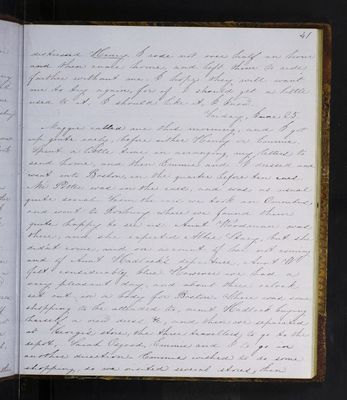 41
distressed Henry. I rode not over half an hour
and then came home, and left them to ride
farther without me. I hope they will want
me to try again, for if I should get a little
used to it, I should like it, I know.
Friday, June 25.
Maggie called me this morning, and I got
up quite early, before either Henry or Emmie.
Spent a little time in arranging my letters to
send home, and then Emmie and I dressed and
went into Boston in the quarter before ten cars.
Mr was in the cars, and was as usual
quite social. From the cars we took an Omnibus
and went to Roxbury where we found them
quite happy to see us. Aunt Woodman was
there, and she expected Mary, but she
didn't come, and on account of her not coming
and of Aunt Haddock's departure, Aunt W
felt considerably blue. However we had a
very pleasant day, and about three o'clock
set out in a body for Boston. There was some
shopping to be attended to, Aunt Haddock buying
herself a new dress &c, and then we separated
at George's store, the three travellers to go to the
depot, Sarah Osgood, Emmie and I to go in
another direction. Emmie wished to do some
shopping, so we visited several stores, then